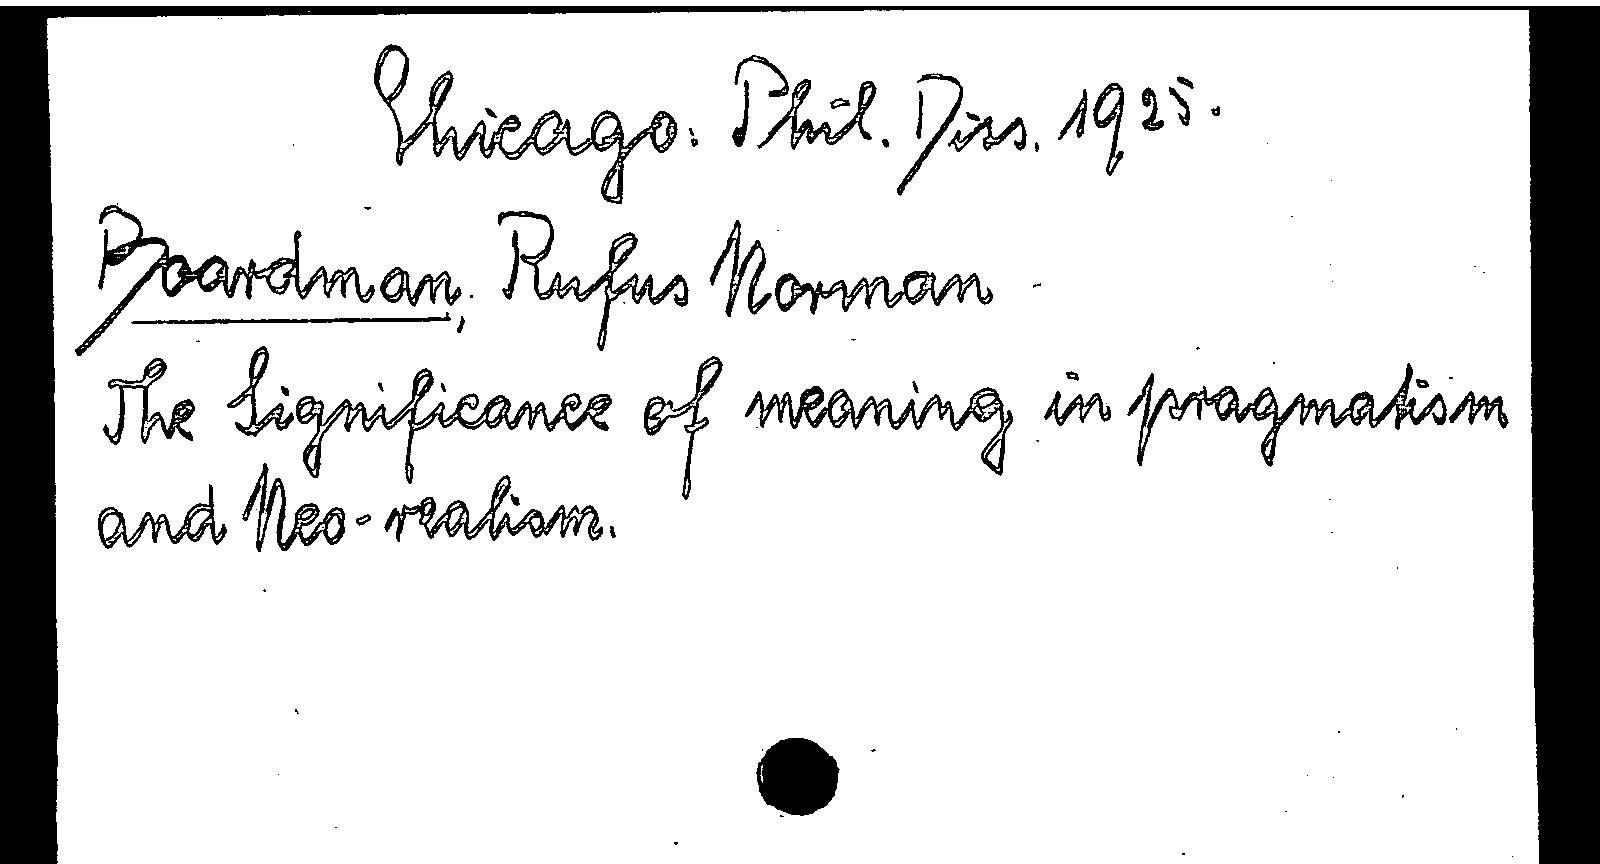 Chicago: Phil. Diss. 1925.
Boardman, Rufus Norman
The Significance of meaning in pragmatism
and Neo-realism.